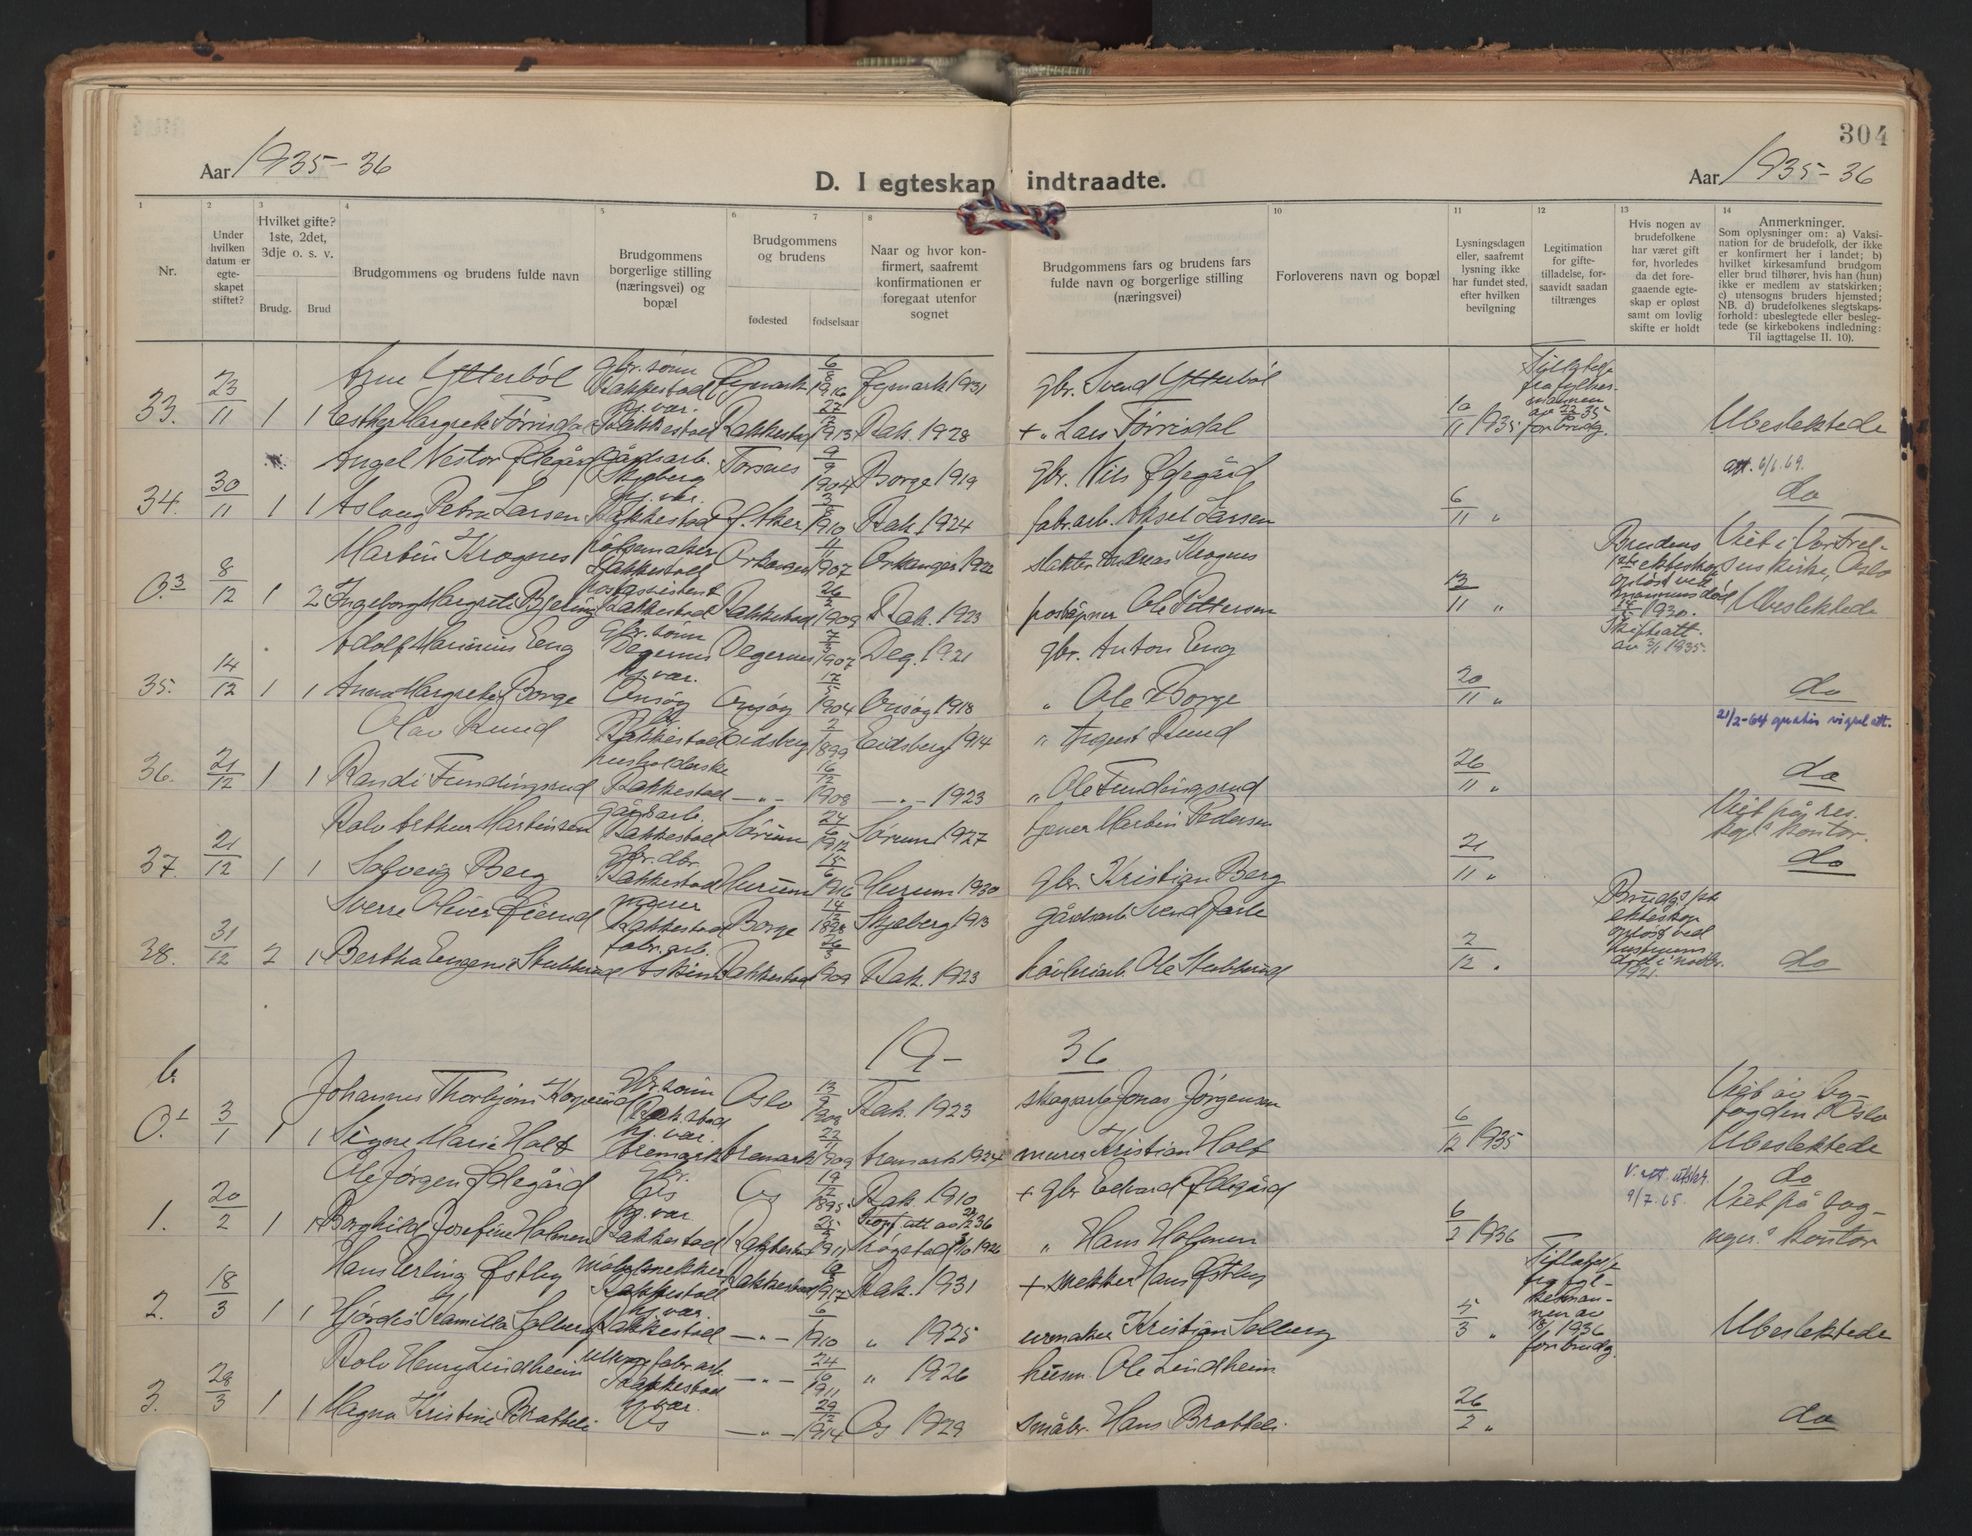 304
Aar 1935-36
D. I egteskap indtraadte.
Aar 1935-36
1 2 3 4 5 6 7 8 10 11 12 13 14
Nr.
Under hvilken datum er egteskapet stiftet?
Hvilket gifte? 1ste, 2det, 3dje o. s. v.
Brudg. Brud
Brudgommens og brudens fulde navn
Brudgommens borgerlige stilling (næringsvei) og bopæl
Brudgommens og brudens
fødested fødselsaar
Naar og hvor konfirmert, saafremt konfirmationen er foregaat utenfor sognet
Brudgommens fars og brudens fars fulde navn og borgerlige stilling (næringsvei)
Forloverens navn og bopæl
Lysningsdagen eller, saafremt lysning ikke har fundet sted, efter hvilken bevilgning
Legitimation for giftetilladelse, forsaavidt saadan tiltrænges
Hvis nogen av brudefolkene har været gift før, hvorledes da det foregaaende egteskap er opløst samt om lovlig skifte er holdt
Anmerkninger.
Som oplysninger om: a) Vaksination for de brudefolk, der ikke er konfirmert her i landet; b) hvilket kirkesamfund brudgom eller brud tilhører, hvis han (hun) ikke er medlem av statskirken; c) utensogns bruders hjemsted; NB. d) brudefolkenes slegtskapsforhold: ubeslegtede eller beslegtede (se kirkebokens indledning: Til iagttagelse II. 10).
Arne Ytterbøl gbr.sønn Rakkestad Øymark 6/8 1916 Øymark 1931 gbr. Svend Ytterbøl
33. 23/11 1 1 Esther Margrete Tørrisdal hj.vær. Rakkestad Rakkestad 27/12 1913 Rak. 1928 + " Lars Tørrisdal 10/11 1935 Tillatelse fra fylkesmannen av 22/10 35 for brudg. Ubeslektede
Angel Nestor Ødegård gårdsarb. Skjeberg Torsnes 9/9 1904 Borge 1919 gbr. Nils Ødegård att. 6/6.69.
34. 30/11 1 1 Aslaug Petra Larsen hj.vær. Rakkestad Ø. Aker 1910 Rak. 1924 fabr.arb. Aksel Larsen 6/11 " do
Martin Krognes pølsemaker Rakkestad Orkanger 1907 Orkanger 1922 slakter Andreas Krognes
O.3 8/12 1 2 Ingeborg Margrete Bjeling postassistent Rakkestad Rakkestad 26/3 1909 Rak. 1923 poståpner Ole Pettersen 13/11 " Brudens 1ste ekteskap opløst ved mannens død 1930. Skifteatt. av 3/1 1935. Viet i Vor Frelsers kirke, Oslo Ubeslektede
Adolf Marinius Eng gbr.sønn Degernes Degernes 7/3 1907 Deg. 1921 gbr. Anton Eng
35. 14/12 1 1 Anna Margrete Borge hj.vær. Onsøy Onsøy 17/5 1904 Onsøy 1918 " Ole Borge 20/11 " do
Olav Rud Rakkestad Eidsberg 1899 Eidsberg 1914 " August Rud 21/2-64 gratis vigsel att.
36. 21/12 1 1 Randi Fundingsrud husholderske Rakkestad -"- 16/12 1908 -"- 1923 " Ole Fundingsrud 26/11 " do
Rolv Arthur Martinsen gårdsarb. Rakkestad Sørum 24/6 1912 Sørum 1927 Martin Pedersen Viet på res. kap.s kontor.
37. 21/12 1 1 Solveig Berg gbr.dtr. Rakkestad Hurum 15/6 1916 Hurum 1930 gbr. Kristian Berg 21/11 " do
Sverre Oliver Øierud murer Rakkestad Borge 14/12 1898 Skjeberg 1913 gårdsarb. Svend
38. 31/12 2 1 Bertha Eugenie Stubberud fabr.arb. Askim Rakkestad 26/3 1909 Rak. 1923 høvleriarb. Ole Stubberud 2/12 " Brudg.s 1ste ekteskap opløst ved hustruens død i novbr. 1921. do
19- 36
b.
Johannes Thorbjørn gbr.sønn Rakkestad Oslo 13/9 1908 Rak. 1923 skogsarb. Jonas Jørgensen Viet av byfogden i Oslo
O.1 3/1 1 1 Signe Marie Holt hj.vær. Aremark Aremark 22/11 1909 Aremark 1924 murer Kristian Holt 6/12 1935 Ubeslektede
Ole Jørgen Ødegård gbr. Os Os 19/12 1895 Rak. 1910 + gbr. Edvard Ødegård V. att. utst. 9/7.65. do
1. 20/2 1 1 Borghild Josefine Holmen hj.vær. Rakkestad Rakkestad 1911 Trøgstad 1926 " Hans Holmen 6/2 1936 Viet på sogneprs. kontor
Hans Erling Østby møbelsnekker Rakkestad Rakkestad 1917 Rak. 1931 + snekker Hans Østby
2. 18/3 1 1 Hjørdis Kamilla Solberg hj.vær. Rakkestad -"- 6/1 1910 " 1925 urmaker Kristian Solberg 5/3 " Tillatelse fra fylkesmannen av 1936 for brudg. Ubeslektede
Rolv Henry Lindheim fabr.arb. Rakkestad -"- 24/10 1911 " 1926 husm. Ole Lindheim
3. 28/3 1 1 Magna Kristine Bratteli hj.vær. Os -"- 29/12 1914 Os 1929 småbr. Hans Bratteli 26/2 " do